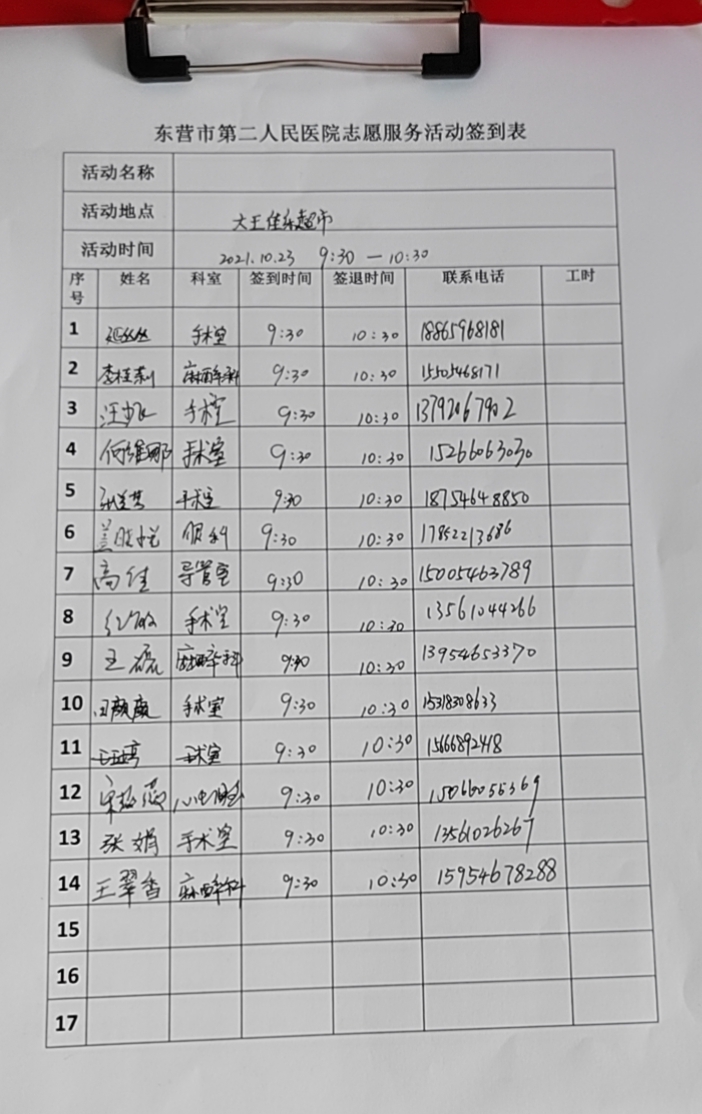 东营市第二人民医院志愿服务活动签到表
活动名称
活动地点 大王佳乐超市
活动时间 2021.10.23 9:30 — 10:30
序号 姓名 科室 签到时间 签退时间 联系电话 工时
1 手术室 9:30 10:30 18865968181
2 李桂荣 麻醉科 9:30 10:30 15505468171
3 手术室 9:30 10:30 13792067902
4 何维娜 手术室 9:30 10:30 15266063030
5 手术室 9:30 10:30 18754648850
6 眼科 9:30 10:30 17852213686
7 高佳 导管室 9:30 10:30 15005463789
8 手术室 9:30 10:30 13561044266
9 王磊 麻醉科 9:30 10:30 13954653370
10 手术室 9:30 10:30 15318308633
11 手术室 9:30 10:30 15666892418
12 9:30 10:30
13 张娟 手术室 9:30 10:30 13561026267
14 王翠香 麻醉科 9:30 10:30 15954678288
15
16
17